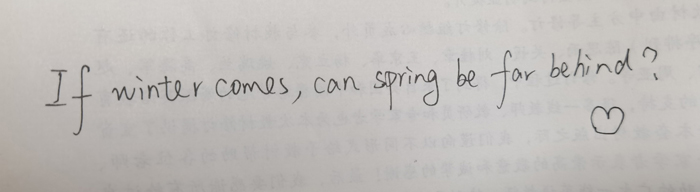 If winter comes, can spring be far behind?
♡